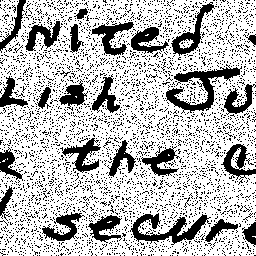 United
lish Ju
the c
secure